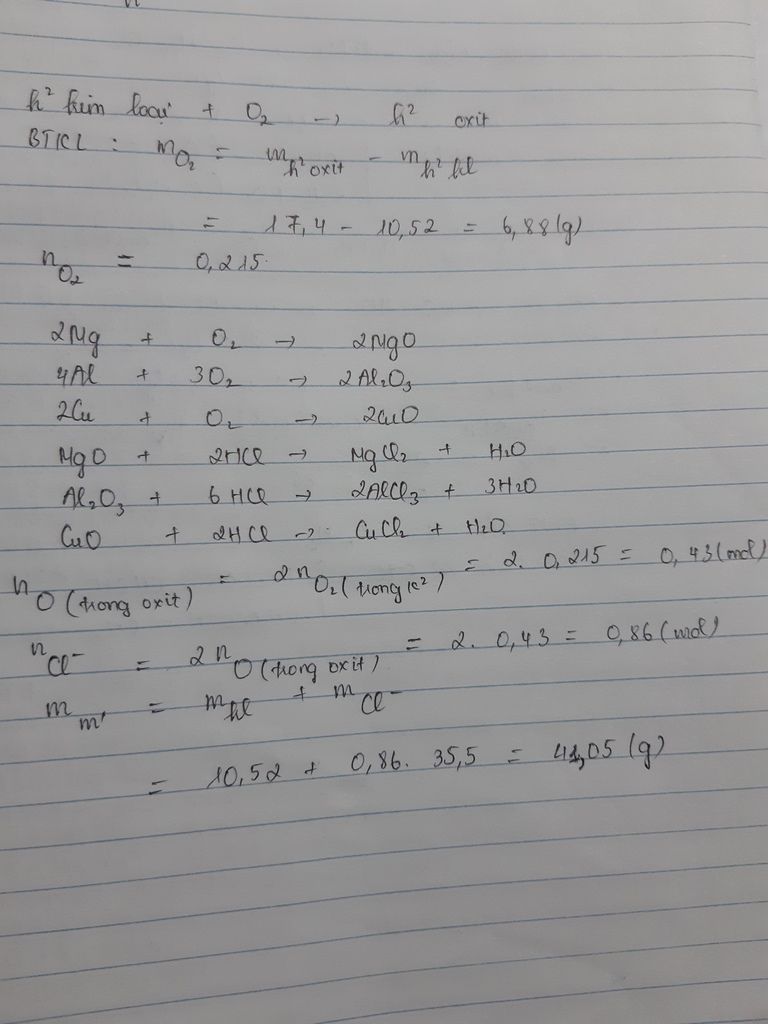 h² kim loại + O₂ → h² oxit
BTKL : m O₂ = m h² oxit - m h² kl
= 17,4 - 10,52 = 6,88 (g)
n O₂ = 0,215.
2Mg + O₂ → 2MgO
4Al + 3O₂ → 2Al₂O₃
2Cu + O₂ → 2CuO
MgO + 2HCl → MgCl₂ + H₂O
Al₂O₃ + 6HCl → 2AlCl₃ + 3H₂O
CuO + 2HCl → CuCl₂ + H₂O.
n O (trong oxit) = 2 n O₂ (trong k²) = 2. 0,215 = 0,43 (mol)
n Cl⁻ = 2 n O (trong oxit) = 2. 0,43 = 0,86 (mol)
m m' = m kl + m Cl⁻
= 10,52 + 0,86. 35,5 = 41,05 (g)